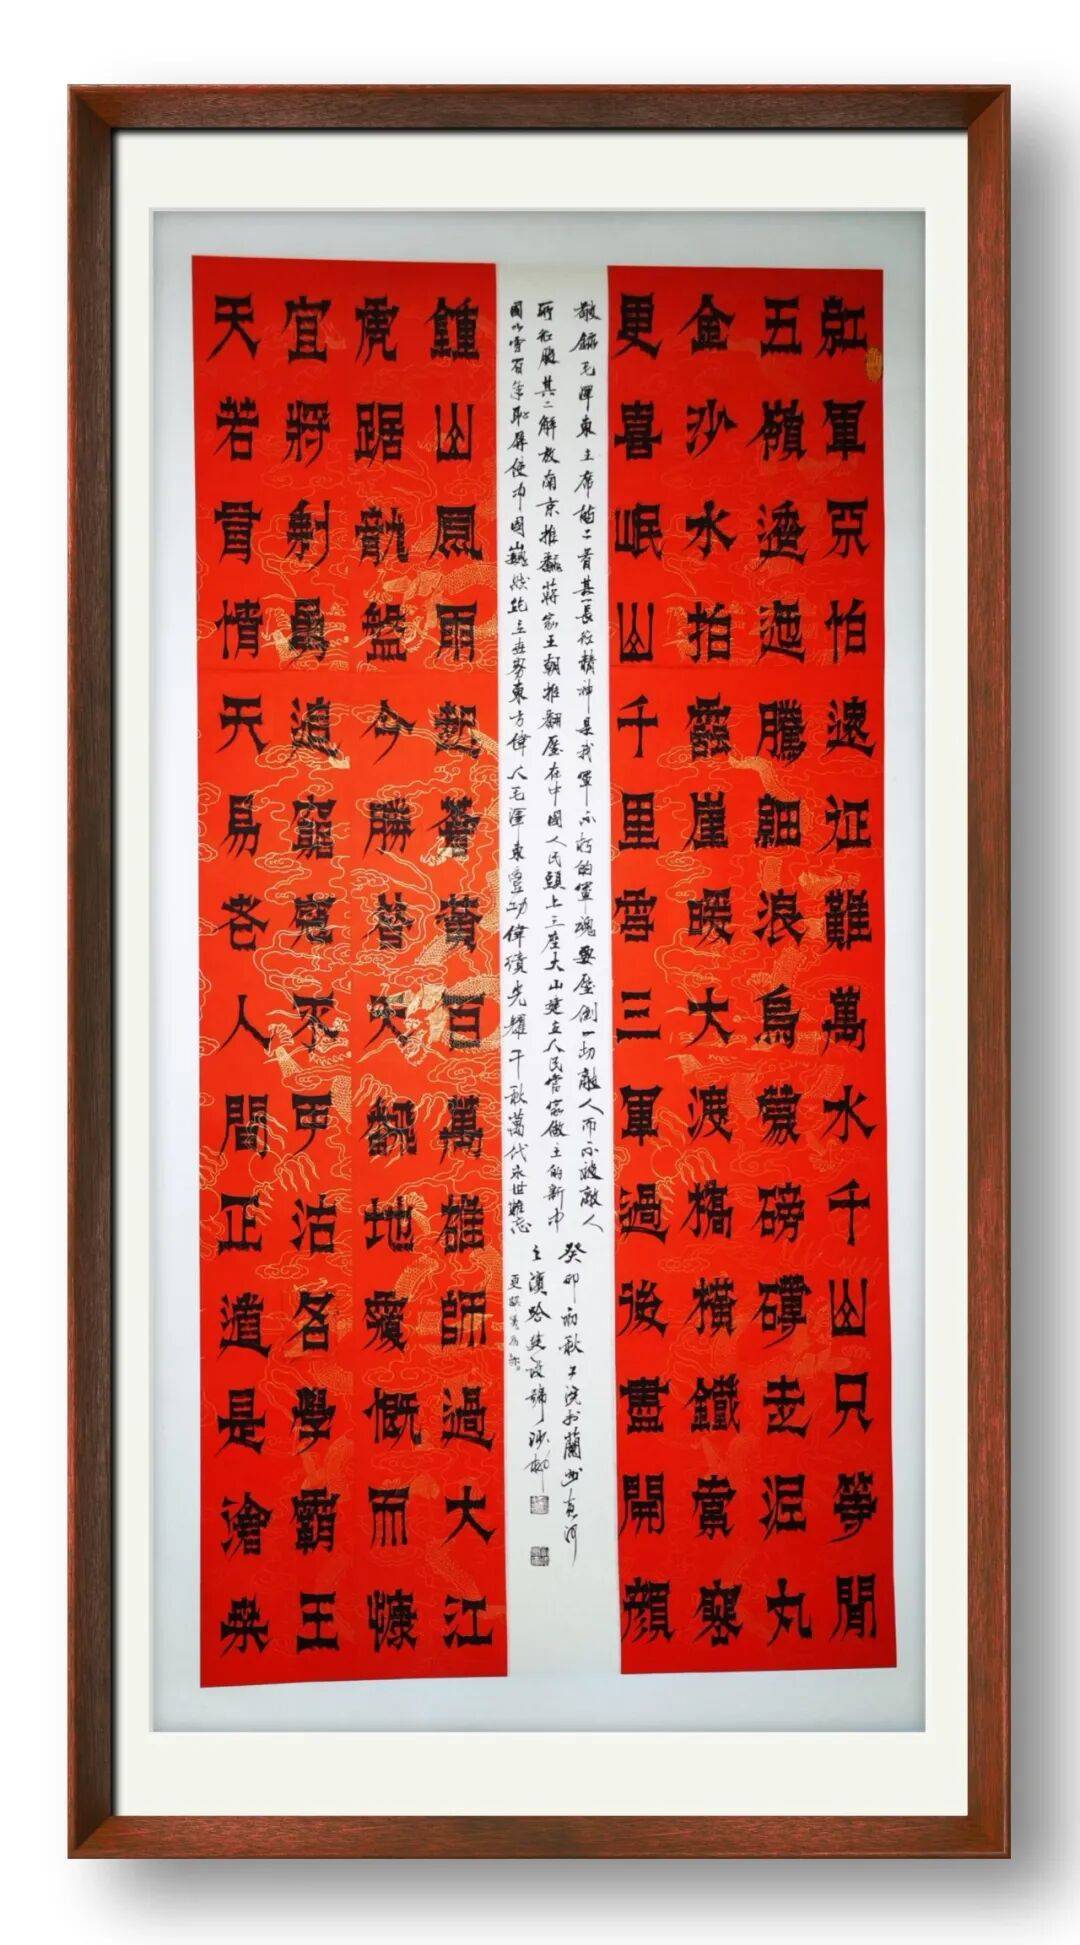 紅軍不怕遠征難萬水千山只等閒
五嶺逶迤騰細浪烏蒙磅礴走泥丸
金沙水拍雲崖暖大渡橋橫鐵索寒
更喜岷山千里雪三軍過後盡開顏
敬錄毛澤東主席詩二首其一長征精神是我軍不朽的軍魂要壓倒一切敵人而不被敵人
所征服其二解放南京推翻蔣家王朝推翻壓在中國人民頭上三座大山建立人民當家做主的新中
國以雪百年恥辱使中國巍然屹立世界東方偉人毛澤東豐功偉績光耀千秋萬代永世難忘
癸卯初秋於蘭州黃河
之濱
鍾山風雨起蒼黃百萬雄師過大江
虎踞龍盤今勝昔天翻地覆慨而慷
宜將剩勇追窮寇不可沽名學霸王
天若有情天易老人間正道是滄桑